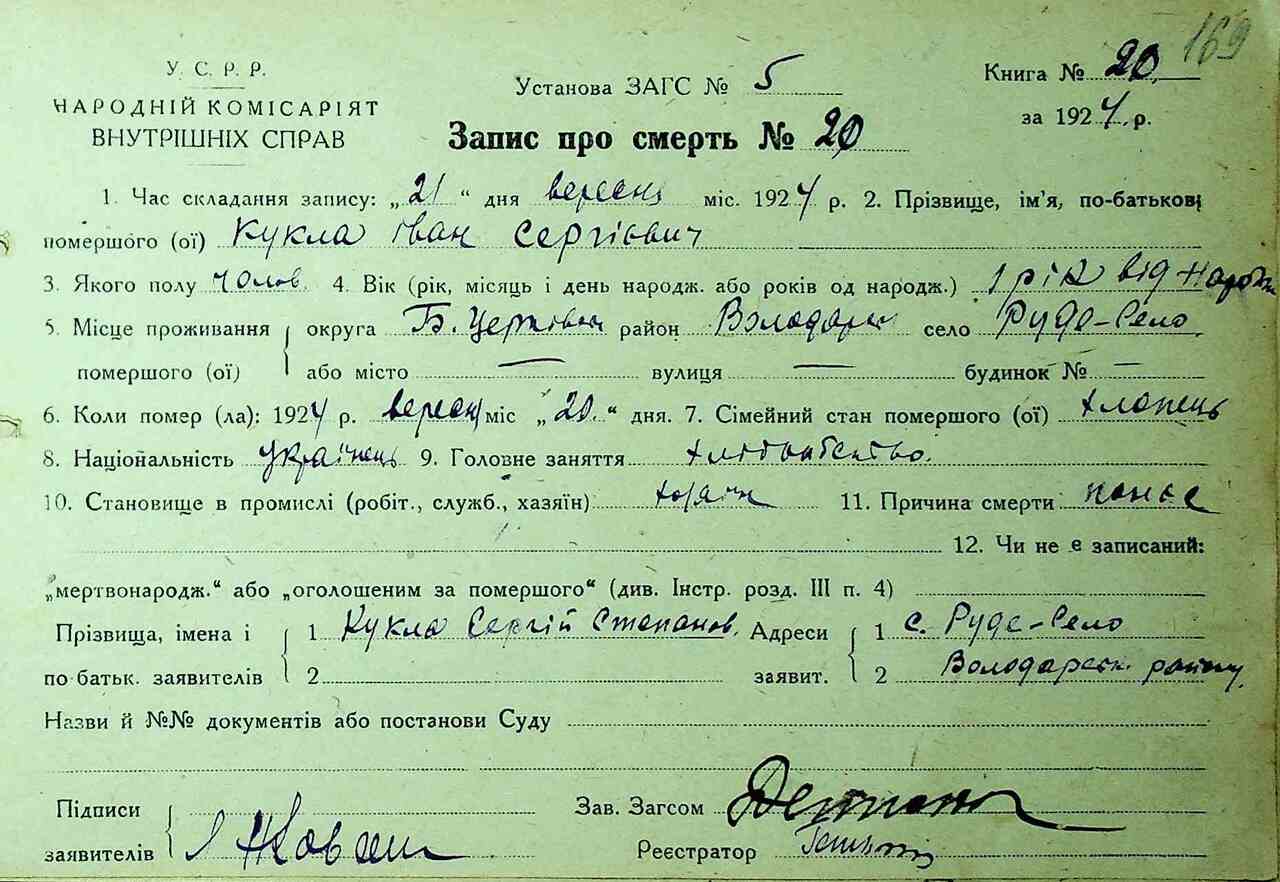 169
У. С. Р. Р.
НАРОДНІЙ КОМІСАРІЯТ
ВНУТРІШНІХ СПРАВ
Установа ЗАГС № 5
Книга № 20
за 1924 р.
Запис про смерть № 20
1. Час складання запису: „21“ дня вересня міс. 1924 р. 2. Прізвище, ім'я, по-батькові
помершого (ої) Кукла Іван Сергієвич
3. Якого полу чолов. 4. Вік (рік, місяць і день народж. або років од народж.) 1 рік від народж
5. Місце проживання округа Б. Церківськ район Володарськ село Руде-Село
помершого (ої) або місто — вулиця — будинок № —
6. Коли помер (ла): 1924 р. вересня міс „20.“ дня. 7. Сімейний стан помершого (ої) хлопець
8. Національність українець 9. Головне заняття хліборобство.
10. Становище в промислі (робіт., служб., хазяїн) хазяїн 11. Причина смерти понос
12. Чи не є записаний:
„мертвонародж.“ або „оголошеним за помершого“ (див. Інстр. розд. III п. 4)
Прізвища, імена і 1 Кукла Сергій Степанов. Адреси 1 с. Руде-Село
по батьк. заявителів 2 заявит. 2 Володарськ. району.
Назви й №№ документів або постанови Суду
Підписи
заявителів
Зав. Загсом
Реєстратор